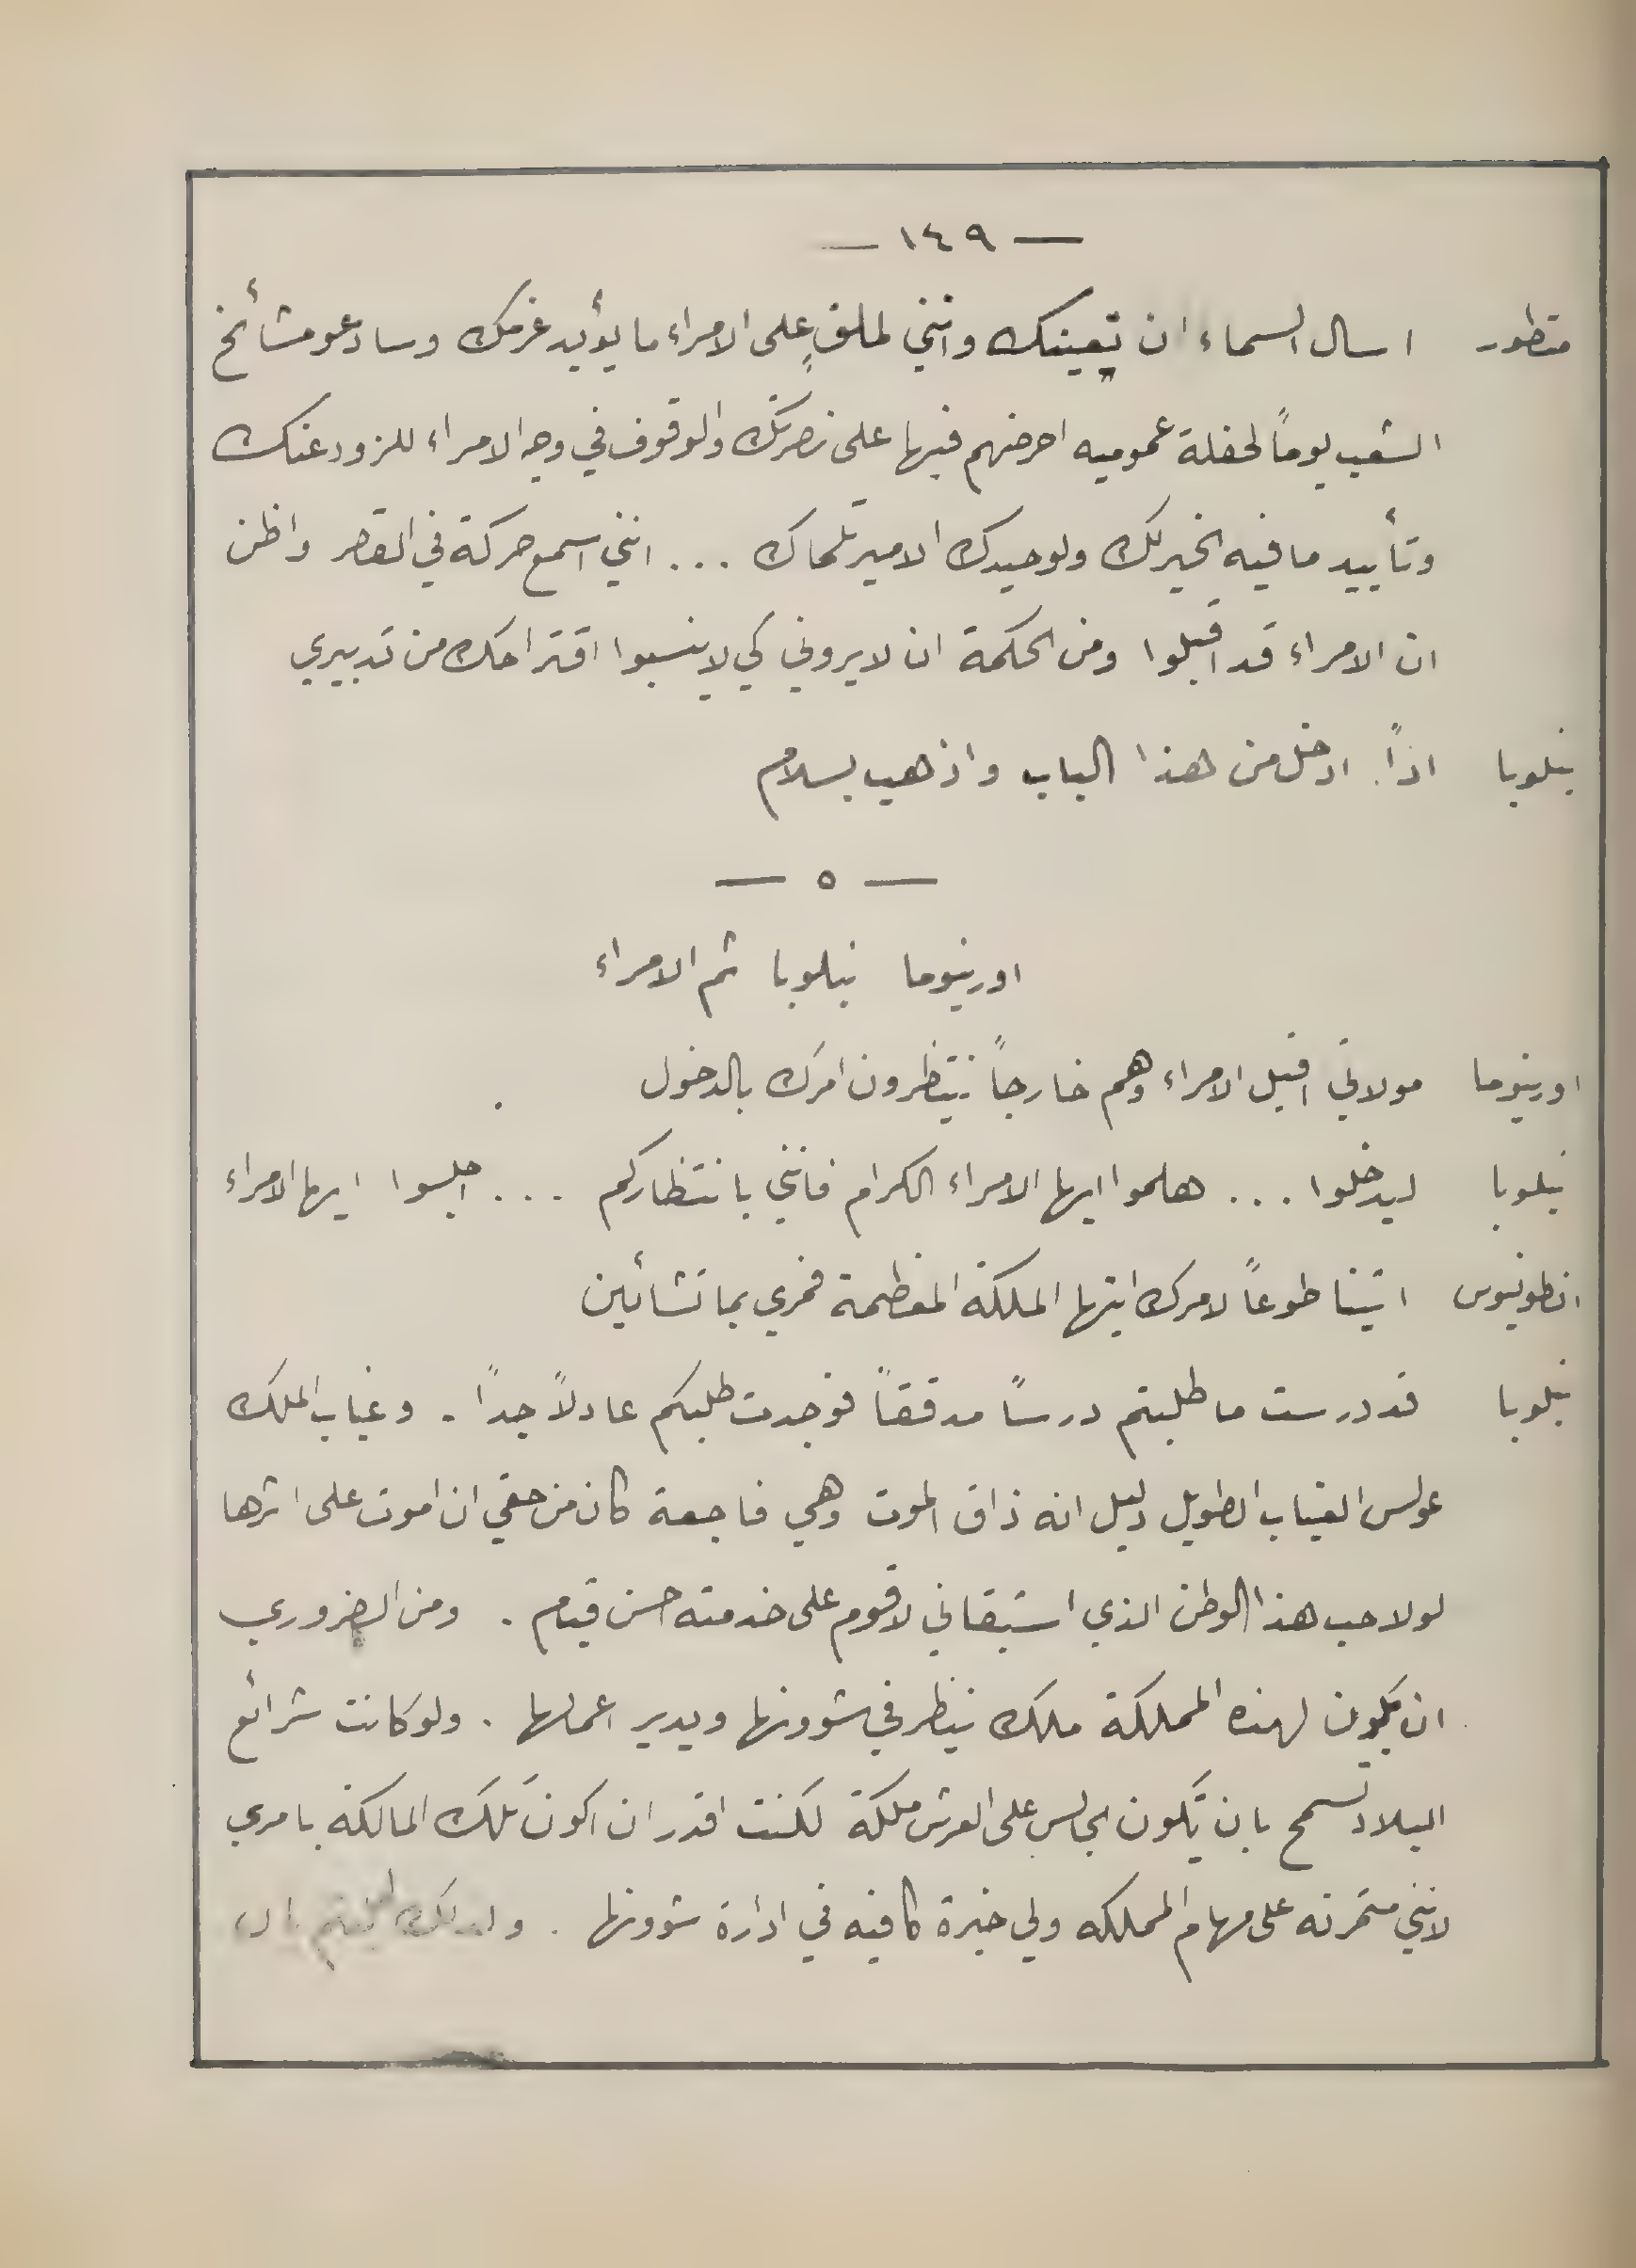 — ١٤٩ —
منطور اسال السماء ان تعينك وانني لملقٍ على الامراء ما يؤيد عزمك وسادعو مشائخ
الشعب يوماً لحفلة عموميه احرضهم فيها على نصرتك والوقوف في وجه الامراء للزود عنك
وتأييد ما فيه الخير لك ولوحيدك الامير تلماك ... انني اسمع حركة في القصر واظن
ان الامراء قد اقبلوا ومن الحكمة ان لا يروني كي لا ينسبوا اقتراحك من تدبيري
بنلوبا اذاً ادخل من هذا الباب واذهب بسلام
— ٥ —
اورينوما بنلوبا ثم الامراء
اورينوما مولاتي اقبل الامراء وهم خارجاً ينتظرون امرك بالدخول
بنلوبا ليدخلوا ... هلموا ايها الامراء الكرام فانني بانتظاركم ... اجلسوا ايها الامراء
انطونيوس اتينا طوعاً لامرك ايتها الملكة المعظمة فمري بما تشائين
بنلوبا قد درست ما طلبتم درساً مدققاً فوجدت طلبكم عادلاً جداً . وغياب الملك
عولس الغياب الطويل دليل انه ذاق الموت وهي فاجعة كان من حقي ان اموت على اثرها
لولا حب هذا الوطن الذي استبقاني لاقوم على خدمته احسن قيام . ومن الضروري
ان يكون لهذه المملكة ملك ينظر في شوونها ويدير اعمالها . ولو كانت شرائع
البلاد تسمح بان تكون الجالس على العرش ملكة لكنت اقدر ان اكون تلك المالكة بامري
لانني متمرنه على مهام المملكه ولي خبرة كافيه في ادارة شوونها . ولذلك